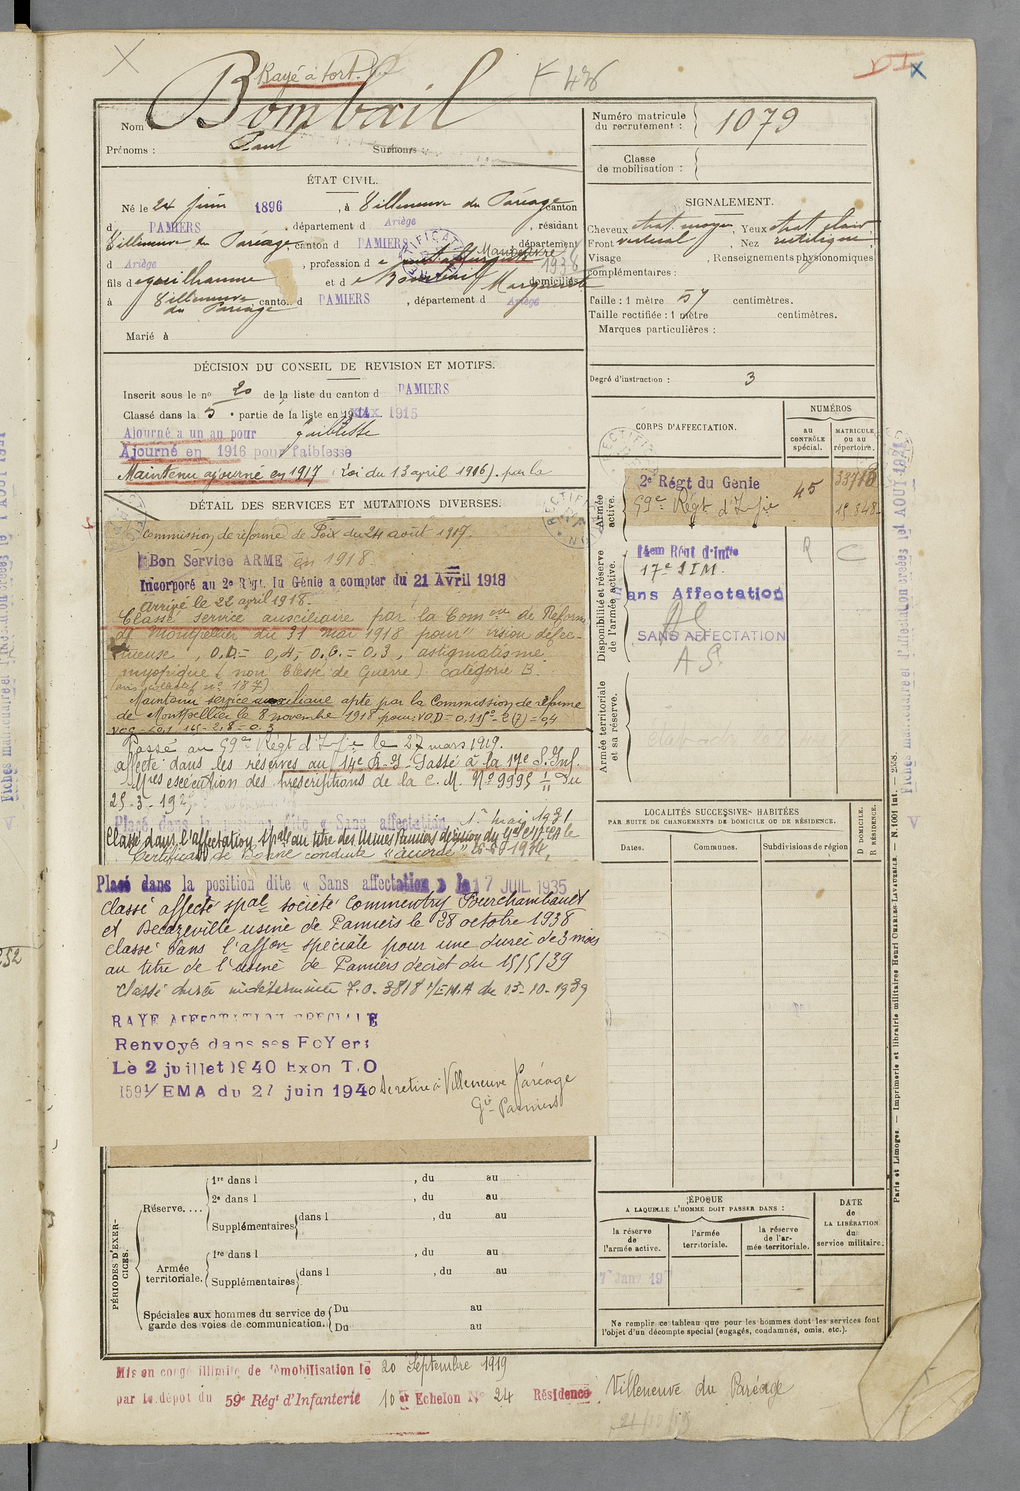 Rayé à tort.
Bombail
Nom :
Prénoms : Paul Surnoms :
Numéro matricule du recrutement : 1079
Classe de mobilisation :
ÉTAT CIVIL.
Né le 24 juin 1896, à Villeneuve du Paréage canton
d PAMIERS, département d Ariège, résidant
Villeneuve du Paréage canton d PAMIERS département
d Ariège, profession d Manoeuvre 1938
fils d e Guilhaume et d e Bombail Marguerite domiciliés
à Villeneuve du Paréage canton d PAMIERS, département d Ariège
Marié à
SIGNALEMENT.
Cheveux chat. moyen, Yeux chat. clair
Front vertical, Nez rectiligne
Visage , Renseignements physionomiques
complémentaires :
Taille : 1 mètre 57 centimètres.
Taille rectifiée : 1 mètre centimètres.
Marques particulières :
Degré d'instruction : 3
DÉCISION DU CONSEIL DE REVISION ET MOTIFS.
Inscrit sous le n° 20 de la liste du canton d PAMIERS
Classé dans la 5e partie de la liste en 1915
Ajourné à un an pour faiblesse
Ajourné en 1916 pour faiblesse
Maintenu ajourné en 1917 (Loi du 13 avril 1916). par la
DÉTAIL DES SERVICES ET MUTATIONS DIVERSES.
Commission de réforme de Foix du 24 août 1917.
Bon Service ARMÉ en 1918.
Incorporé au 2e Régt. du Génie a compter du 21 Avril 1918
Arrivé le 22 avril 1918.
Classé service auxiliaire par la Comon de Réforme
de Montpellier du 31 mai 1918 pour "vision défec-
tueuse O.D. = 0,4, O.G. = 0,3, astigmatisme
myopique (non blessé de Guerre) catégorie B.
Maintenu service auxiliaire apte par la Commission de réforme
de Montpellier le 8 novembre 1918 pour:
Passé au 59e Régt d'Ifie le 27 mars 1919.
affecté dans les réserves au 14e R. I. Passé à la 17e S. Inf.
Mres exécution des prescriptions de la C. M. N° 9995 du
25-3-192
Placé dans la position dite « Sans affectation 1r mai 1931
Classé dans l'affectation spale au titre des Usines Pamiers
Certificat de Bonne conduite "accordé"
Placé dans la position dite « Sans affectation » le 17 JUIL 1935
Classé affecté spal société Commentry Fourchambault
et Decazeville usine de Pamiers le 28 octobre 1938
classé dans l'affon spéciale pour une durée de 3 mois
au titre de l'usine de Pamiers décret du 15/5/39
Classé durée indéterminée 7.0.3818 1/E.M.A du 13-10-1939
RAYÉ AFFECTATION SPÉCIALE
Renvoyé dans ses FoYers
Le 2 juillet 1940 Exon T.O
1591/EMA du 27 juin 1940 Se retire à Villeneuve Paréage
Con Pamiers
CORPS D'AFFECTATION.
NUMÉROS
au contrôle spécial.
matricule ou au répertoire.
Armée active.
2e Régt du Génie
59e Régt d'Ifie 45
Disponibilité et réserve de l'armée active.
14em Régt d'Infie
17e S I M.
Sans Affectation
AS
SANS AFFECTATION
A S.
Armée territoriale et sa réserve.
LOCALITÉS SUCCESSIVES HABITÉES
PAR SUITE DE CHANGEMENTS DE DOMICILE OU DE RÉSIDENCE.
Dates. Communes. Subdivisions de région
D DOMICILE. R RÉSIDENCE.
ÉPOQUE
A LAQUELLE L'HOMME DOIT PASSER DANS :
la réserve de l'armée active.
l'armée territoriale.
la réserve de l'armée territoriale.
DATE de LA LIBÉRATION du service militaire.
Ne remplir ce tableau que pour les hommes dont les services font
l'objet d'un décompte spécial (engagés, condamnés, omis, etc.).
PÉRIODES D'EXERCICES.
Réserve....
1re dans l , du au
2e dans l , du au
Supplémentaires dans l , du au
Armée territoriale.
1re dans l , du au
Supplémentaires dans l , du au
Spéciales aux hommes du service de garde des voies de communication.
Du au
Du au
Mis en congé illimité de démobilisation le 20 Septembre 1919
par le dépôt du 59e Régt d'Infanterie 10er Echelon N° 24 Résidence Villeneuve du Paréage
Paris et Limoges. — Imprimerie et librairie militaires Henri CHARLES-LAVAUZELLE. — N. 1001 int. — 2358.
252